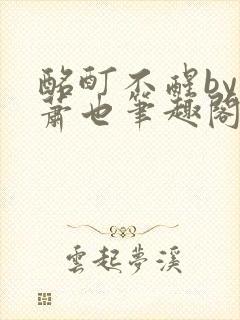 酩酊不醒by
萧也筆趣閣
雲起夢溪